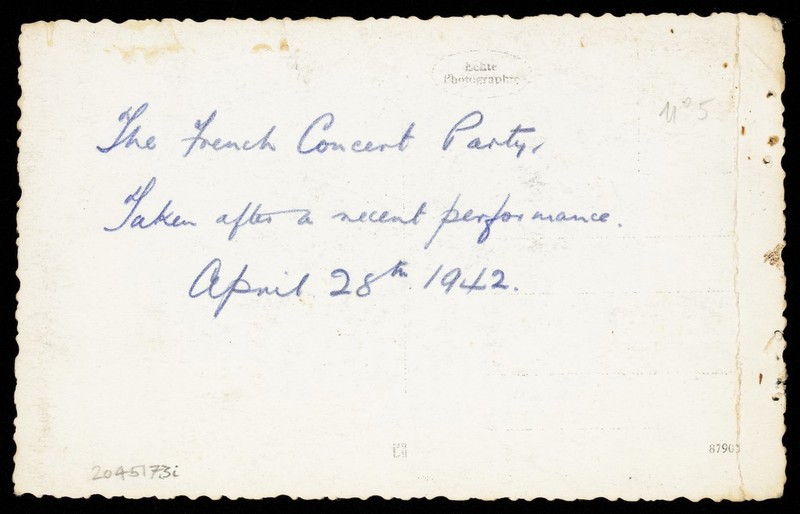 Echte
Photographie
N° 5
The French Concert Party,
Taken after a recent performance.
April 28th 1942.
2045173i